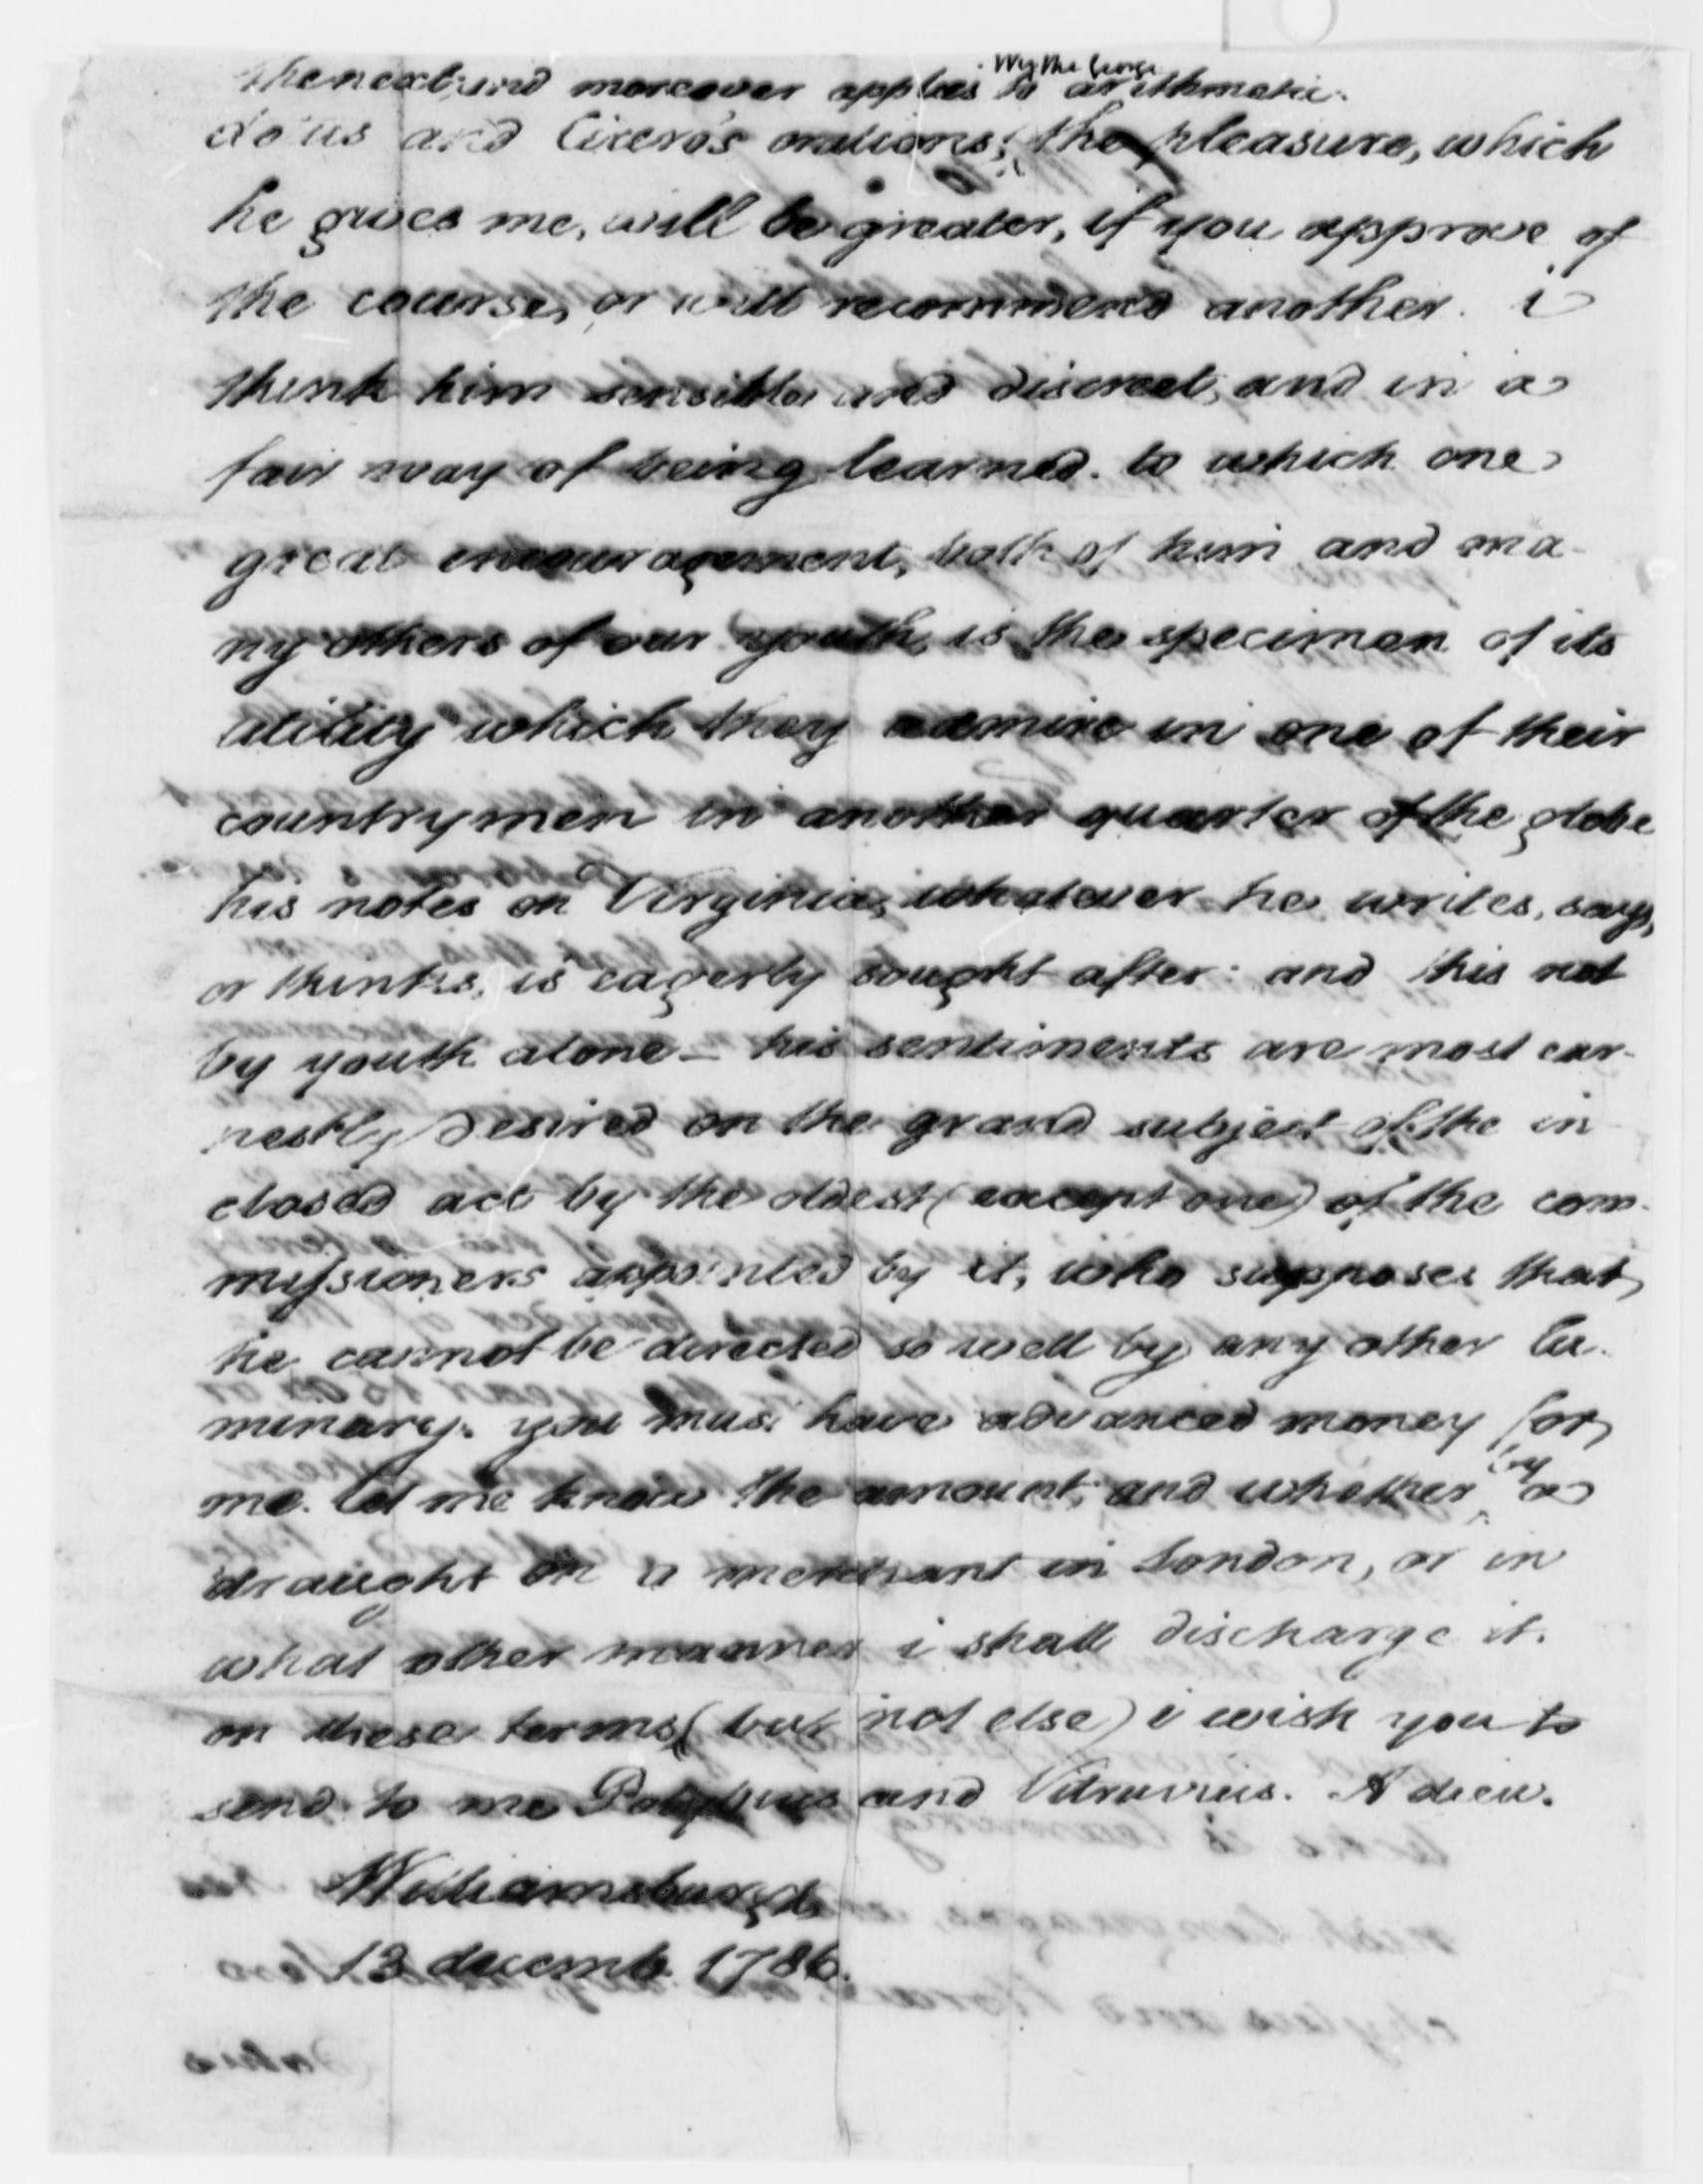 Wythe George
the next; and moreover applies to arithmetic.
do'us and Cicero's orations; the pleasure, which
he gives me, will be greater, if you approve of
the course, or will recommend another. i
think him sensible and discreet, and in a
fair way of being learned. to which one
great encouragement, both of him and ma-
ny others of our youth, is the specimen of its
utility which they admire in one of their
countrymen in another quarter of the globe
his notes on Virginia, whatever he writes, says,
or thinks, is eagerly sought after: and this not
by youth alone — his sentiments are most ear-
nestly desired on the grand subject of the in-
closed act by the oldest (except one) of the com-
missioners appointed by it, who supposes that
he cannot be directed so well by any other lu-
minary. you must have advanced money for
me. let me know the amount; and whether by a
draught on a merchant in London, or in
what other manner i shall discharge it.
on these terms (but not else) i wish you to
send to me Polybius and Vitruvius. Adieu.
Williamsburgh,
13 decemb. 1786.